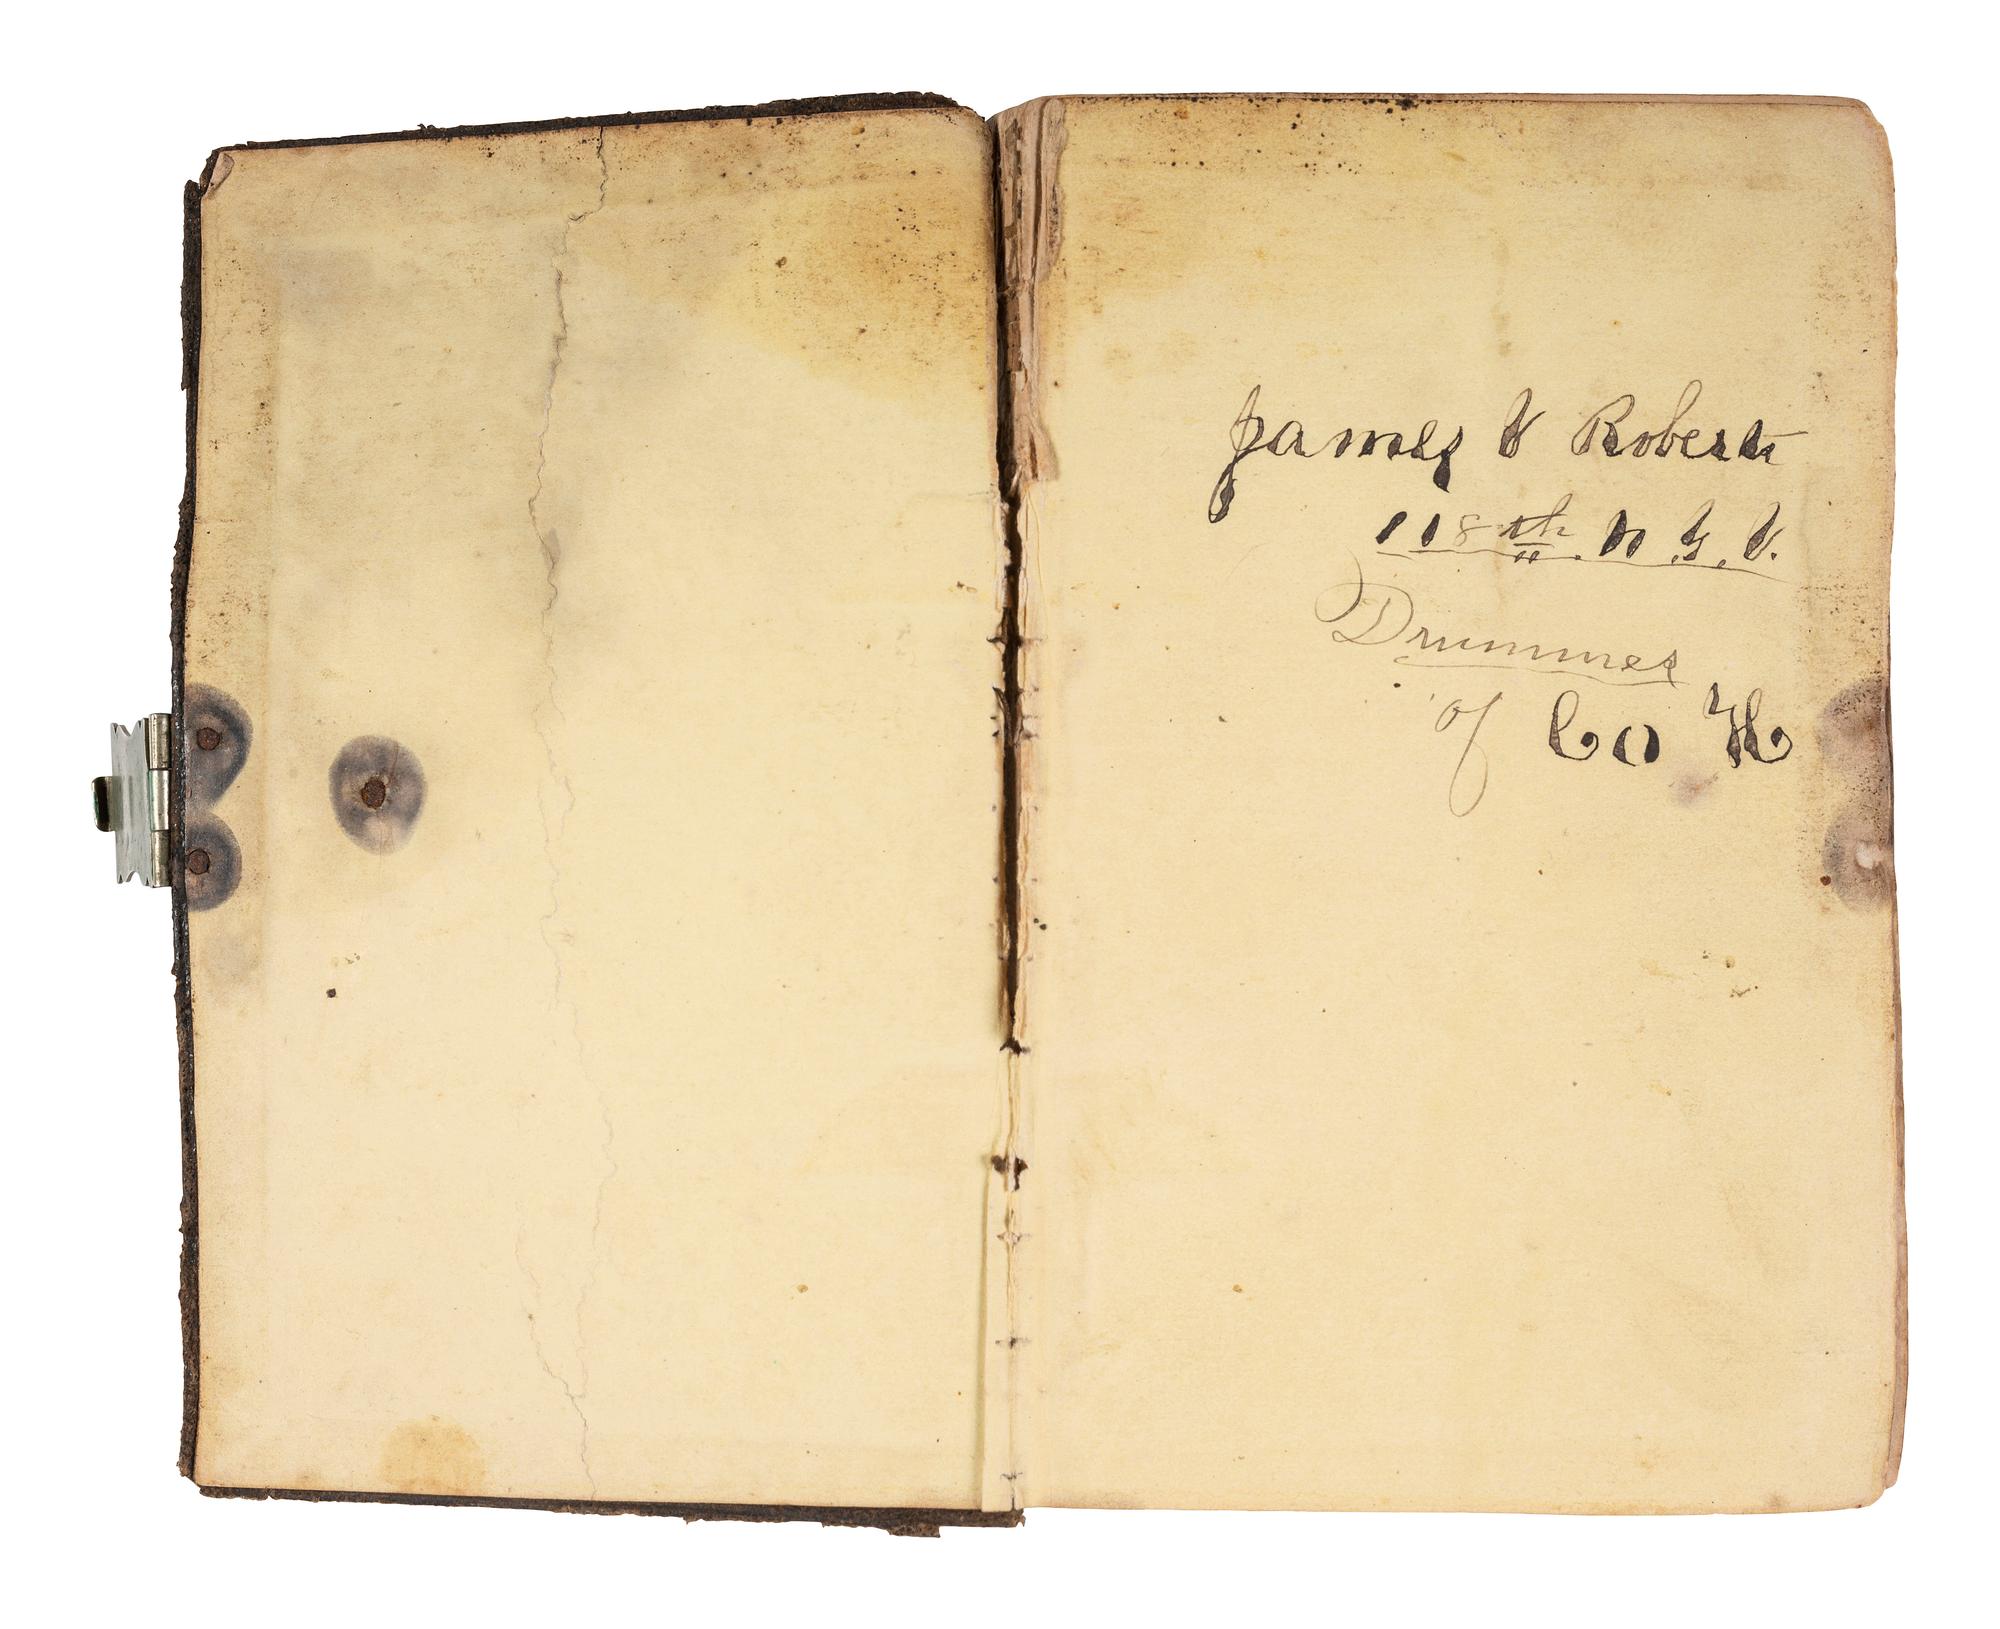 James V Roberts
118th N. Y. V.
Drummer
of Co H